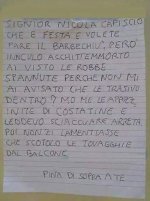 SIGNIOR NICOLA CAPISCIO
CHE È FESTA E VOLETE
FARE IL BARBECHIÙ, PERÒ
INNCULO ACCHITEMMORTO
AI VISTO LE ROBBE
SPANNUTE PERCHE NON MI
AI AVISATO CHE LE TRASIVO
DENTRO? MO ME LE APPEZ
INITE DI COSTATINE E
LEDDEVO SCIACQUARE ARRETA
POI NON ZI LAMENTASSE
CHE SCOTOLO LE TOVAGGHIE
DAL BALCONE
PINA DI SOPRA A TE